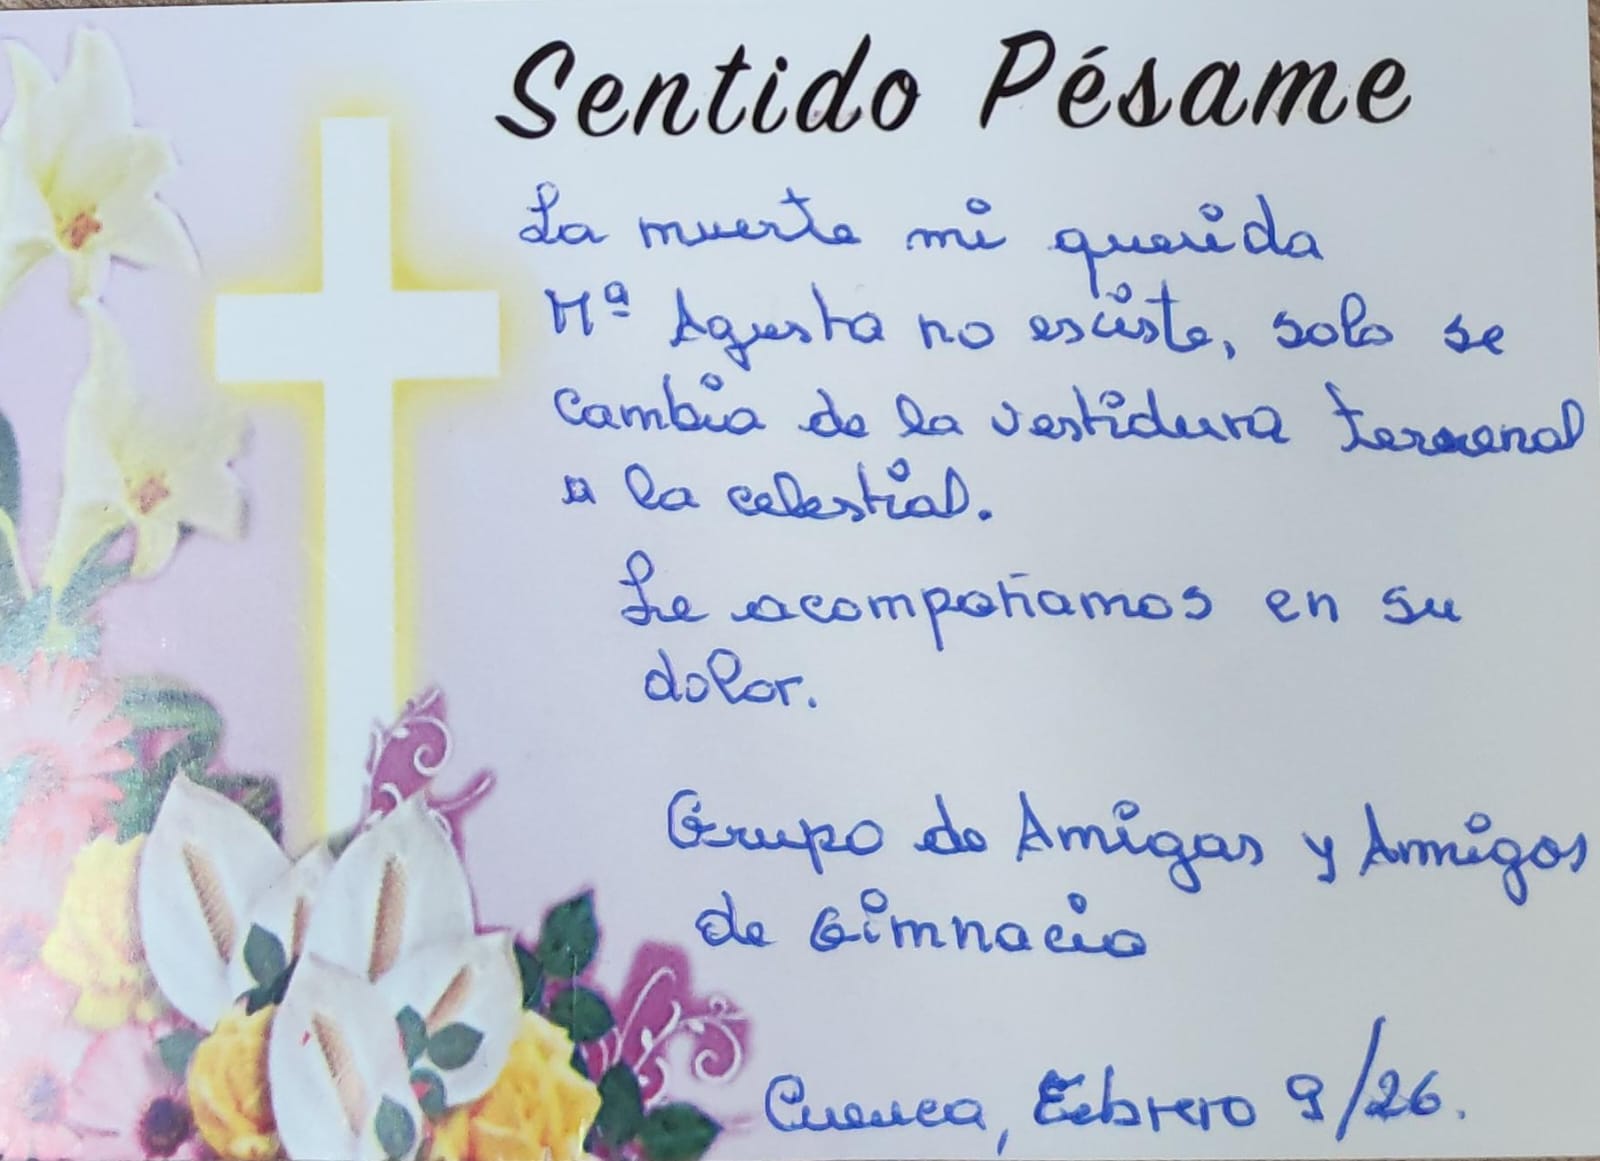 Sentido Pésame
La muerte mi querida
Mª Agusta no esciste, solo se
cambia de la vestidura terrenal
a la celestial.
Le acompañamos en su
dolor.
Grupo de Amigas y Amigos
de Gimnacio
Cuenca, Febrero 9/26.